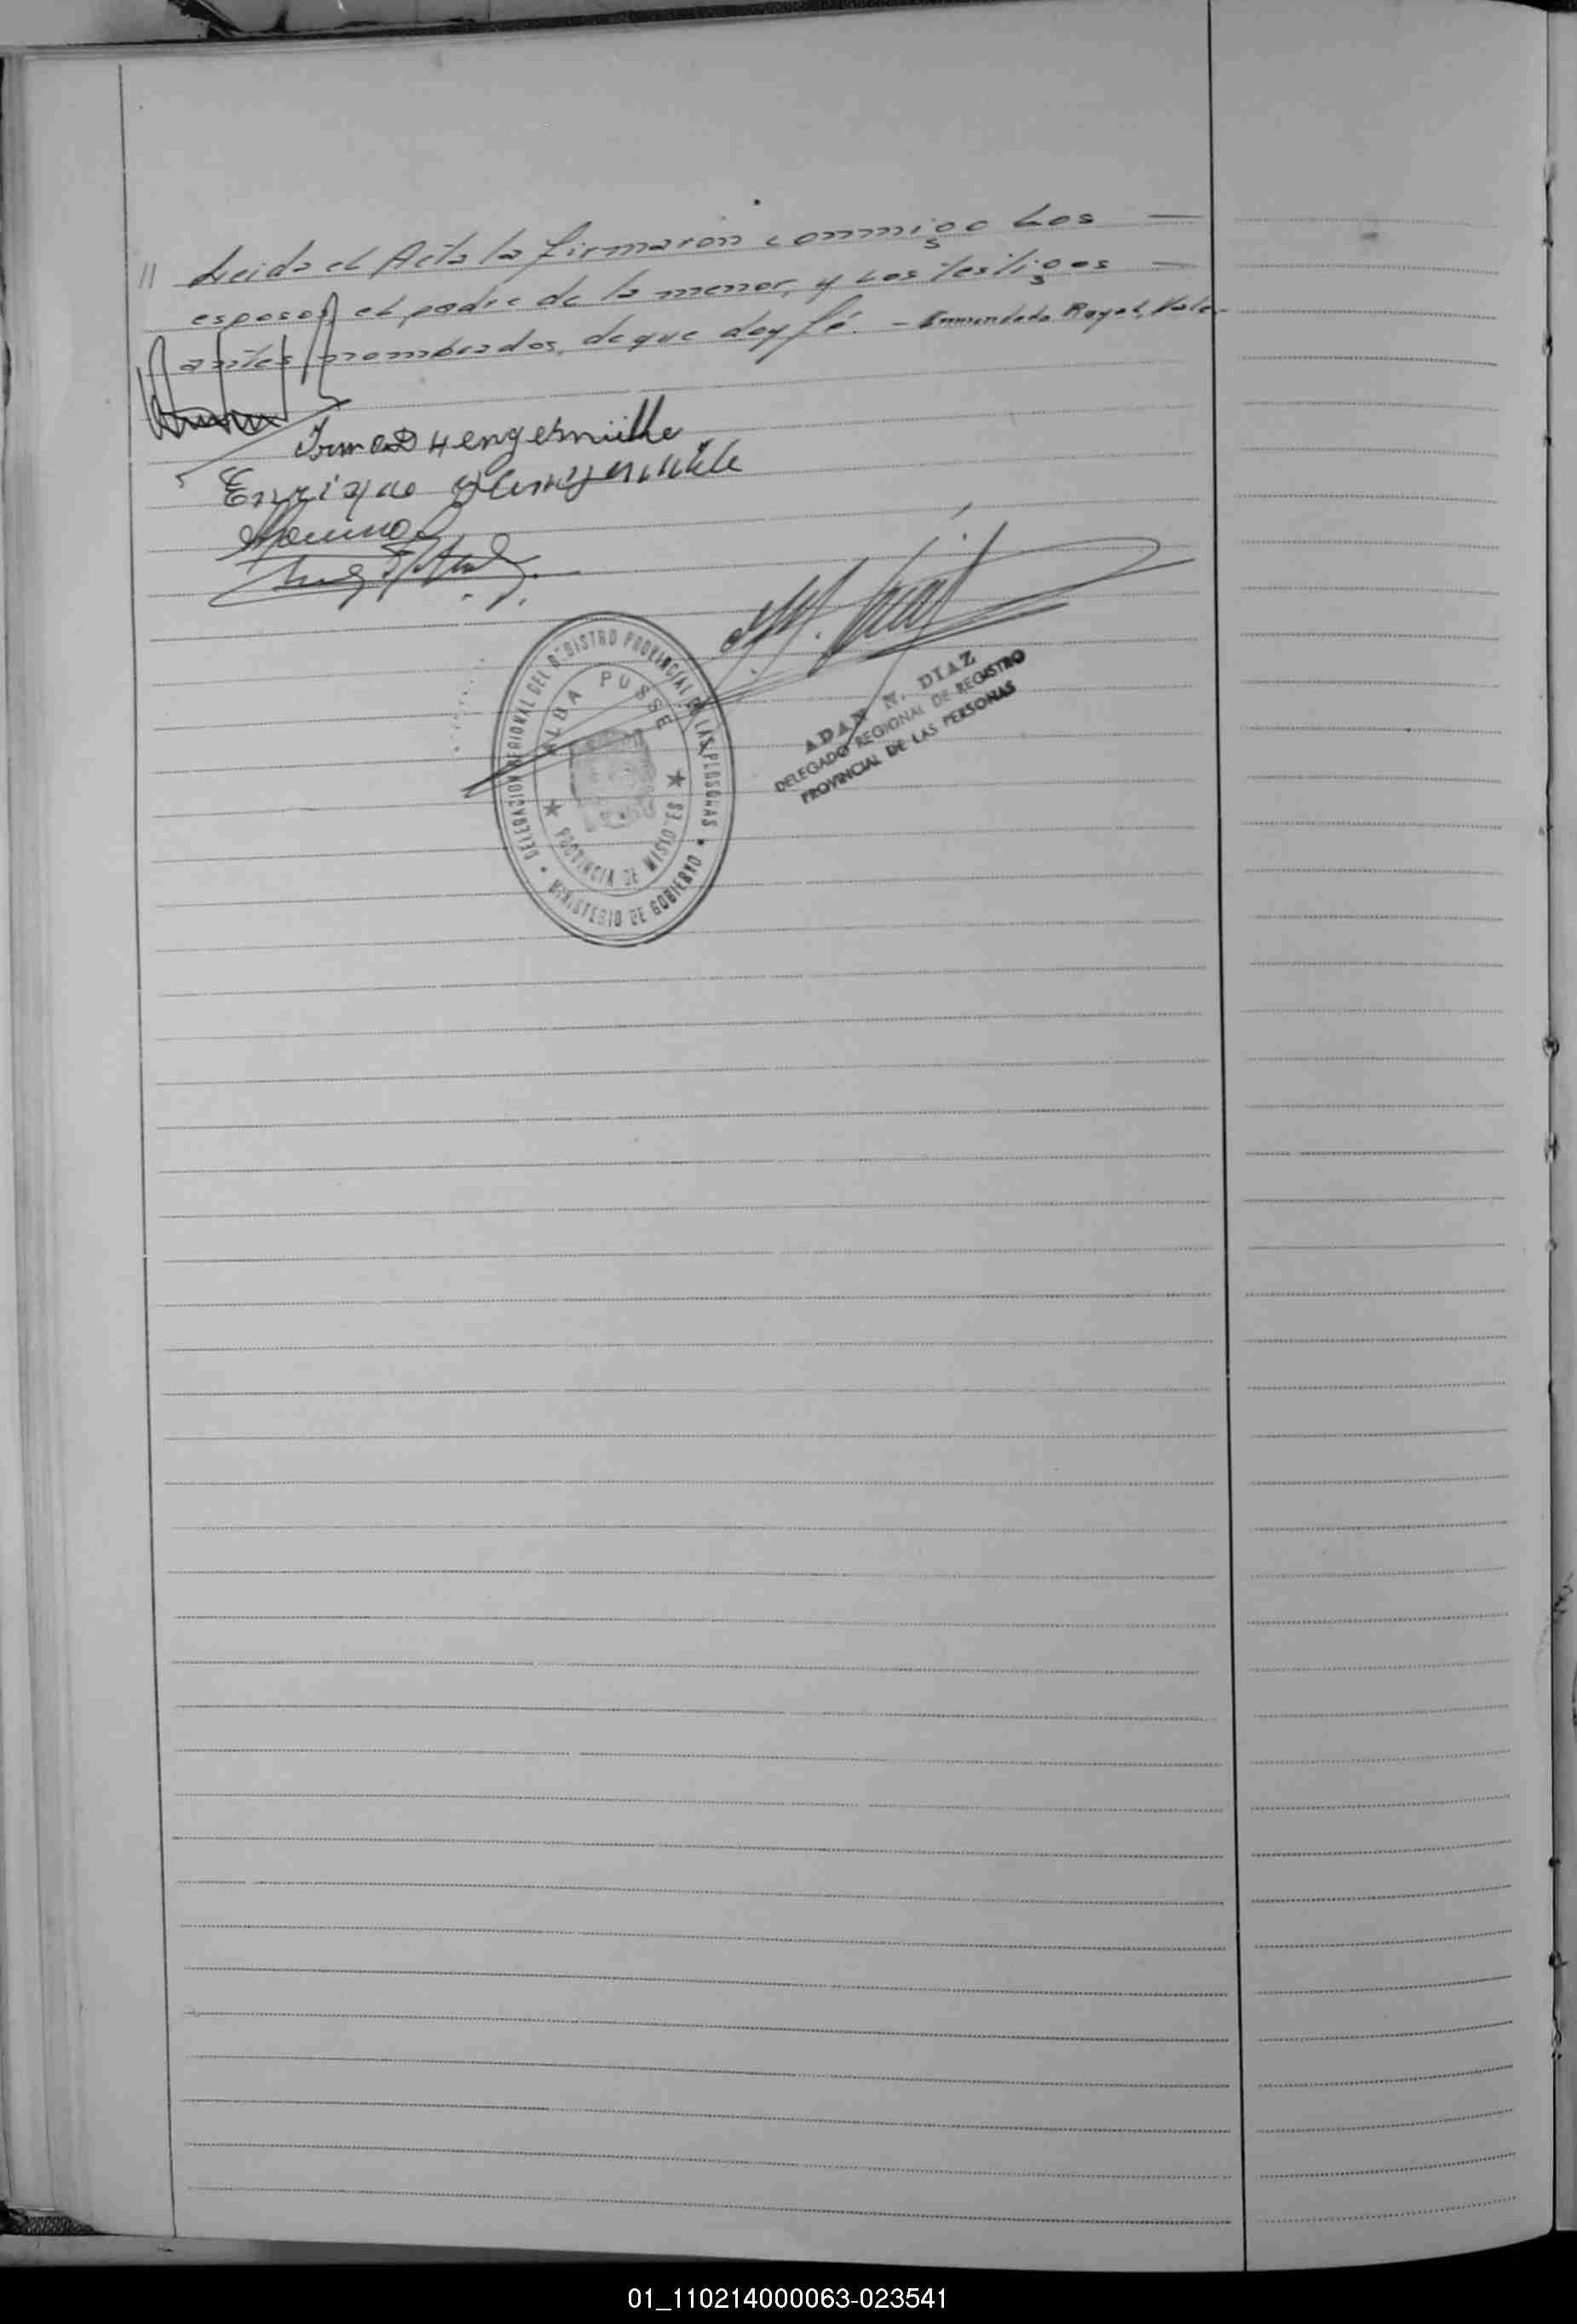 // Leida el Acta la firmaron conmigo Los —
esposos, el padre de la menor, y Los testigos —
antes nombrados, de que doy fé. - Enmendado Rayal, Vale-
Irma D Hengemühle
Enrique Hengemühle
DELEGACION REGIONAL DEL REGISTRO PROVINCIAL DE LAS PERSONAS • MINISTERIO DE GOBIERNO •
ALBA PUSSE
★ PROVINCIA DE MISIONES ★
ADAN N. DIAZ
DELEGADO REGIONAL DE REGISTRO
PROVINCIAL DE LAS PERSONAS
01_110214000063-023541